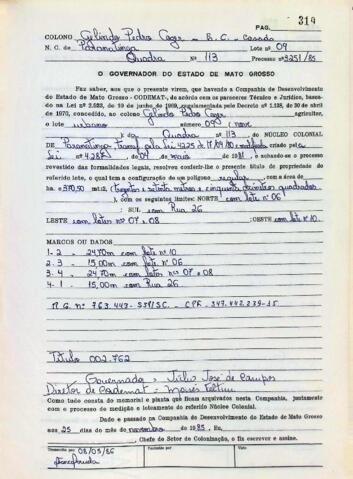 PAG. 314
COLONO Gelindo Pedro - R.C. - Casado
N. C. de Paranatinga Lote nº 09
Quadra Nº 113 Processo nº 3251/85
O GOVERNADOR DO ESTADO DE MATO GROSSO
Faz saber, aos que o presente virem, que havendo a Companhia de Desenvolvimento
do Estado de Mato Grosso - CODEMAT, de acôrdo com os pareceres Técnico e Jurídico, bases-
na Lei Nº 2.023, de 19 de junho de regulamentada pelo Decreto Nº 1.138, de 30 de abril
de 1970, concedido, ao colono Gelindo Pedro agricultor,
o lote urbano número 09 (nove
) da Quadra nº 113 do NÚCLEO COLONIAL
DE Paranatinga, criado pela
Lei nº 4287 de 04 de maio de 1981 e achando-se o processo
revestido das formalidades legais, resolveu conferir-lhe o presente título de propriedade do
referido lote, o qual tem a configuração de um polígono regular com a área de
370,50 mt2, (trezentos e setenta metros e cinquenta decímetros quadrados
), com os seguintes limites: NORTE com lote nº 06
SUL com Rua 26
LESTE com lotes nº 07 e 08 ;OESTE com lote nº 10.
MARCOS OU DADOS
1 - 2 - 24,70m com lote nº 10
2 - 3 - 15,00m com lote nº 06
3 - 4 - 24,70m com lotes nºs 07 e 08
4 - 1 - 15,00m com Rua 26
R.G. nº 763.443 - SSP/SC - CPF
Titulo 002.762
Governador - Júlio José de Campos
Diretor da Codemat -
Como tudo consta do memorial e planta que ficam arquivados nesta Companhia, juntamente
com o processo de medição e loteamento do referido Núcleo Colonial.
Dado e passado na Companhia de Desenvolvimento do Estado de Mato Grosso
aos 25 dias do mês de novembro de 1985. Eu,
, Chefe do Setor de Colonização, o fiz escrever e assino.
08/05/86
Conferido por
Visto